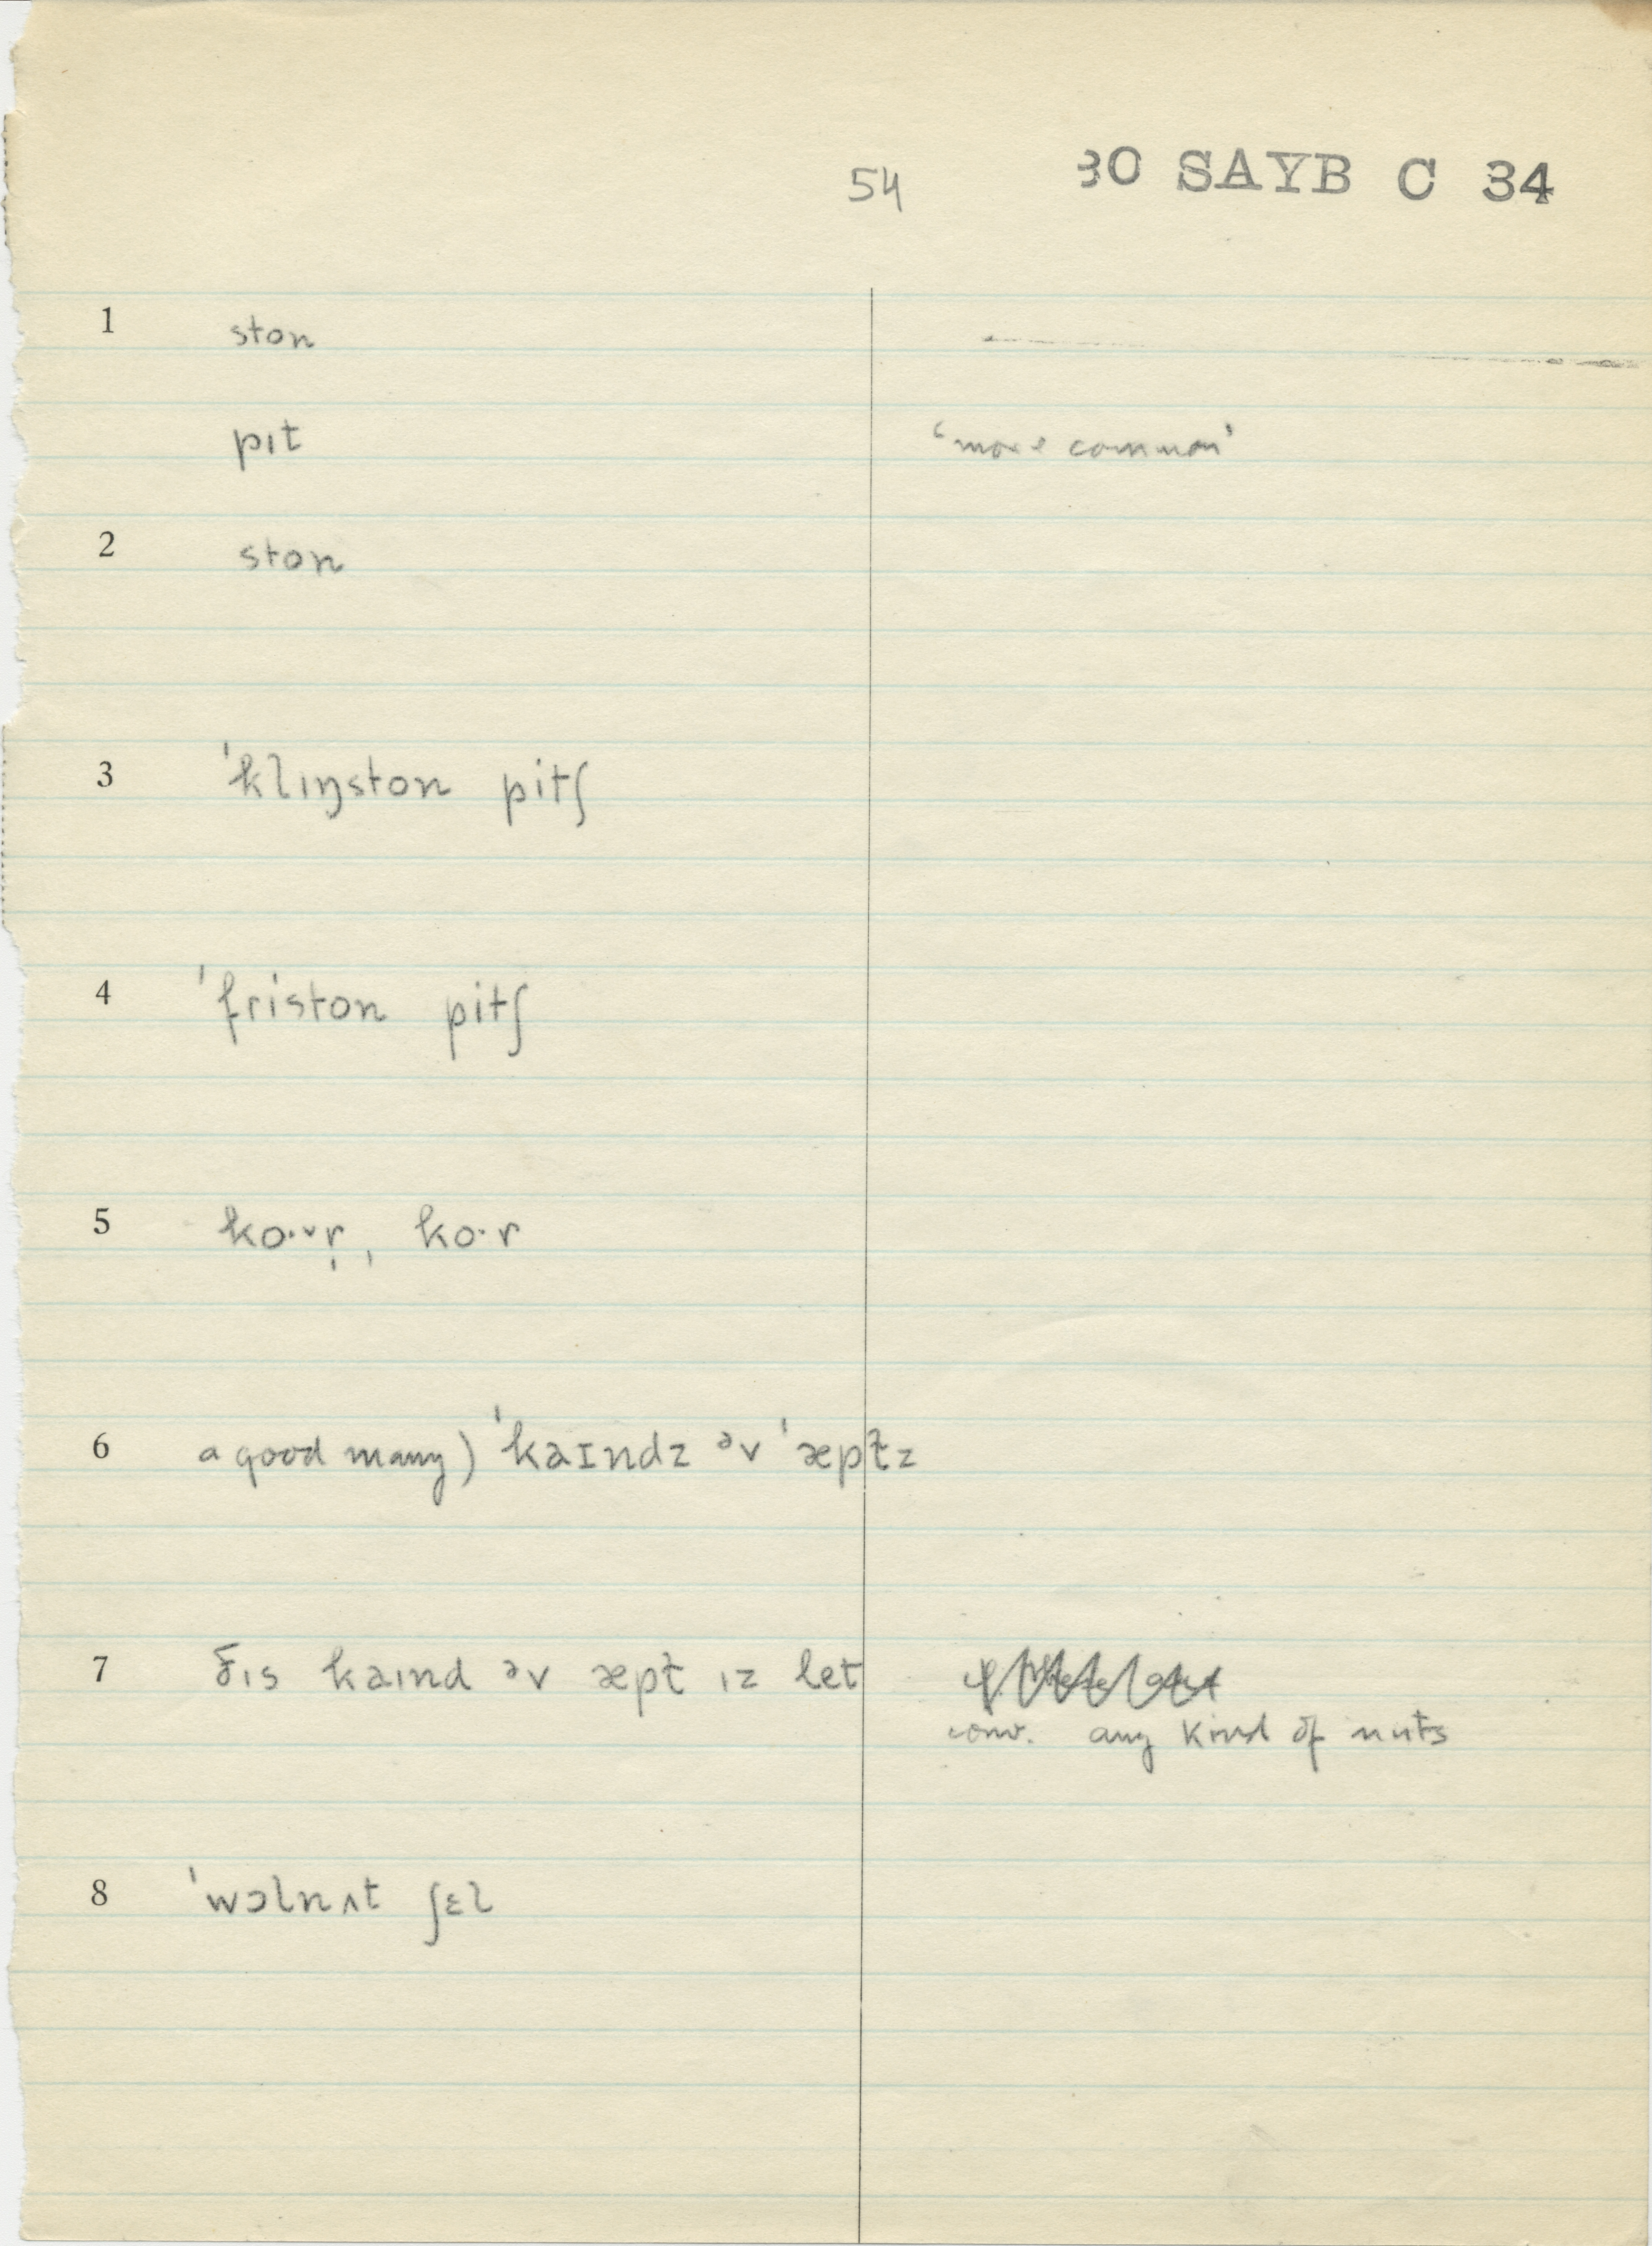 54 30 SAYB C 34
1 ston
pɪt ‘more common’
2 ston
3 ˈklɪŋston pitʃ
4 ˈfriston pitʃ
5 ko·ᵛr̩, ko·r
6 a good many) ˈkaɪndz əv ˈæpɫz
7 ðɪs kaɪnd əv æpɫ ɪz let
conv. any kind of nuts
8 ˈwɔlnʌt ʃɛl